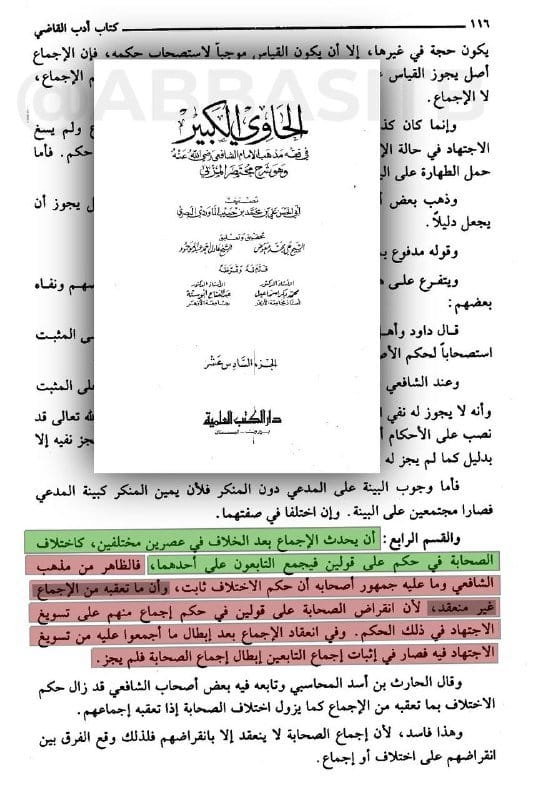 ١١٦
كتاب أدب القاضي
يكون حجة في غيرها، إلا أن يكون القياس موجباً لاستصحاب حكمه، فإن الإجماع
أصل يجوز القياس
الإجماع،
لا الإجماع.
وإنما كان كذ
ولم يسغ
الاجتهاد في حالة الإ
حكم. فأما
حمل الطهارة على الي
وذهب بعض أ
يجوز أن
يجعل دليلاً.
وقوله مدفوع ب
ويتفرع على ه
ـهم ونفاه
بعضهم:
قال داود وأهـ
على المثبت
استصحاباً لحكم الأص
وعند الشافعي
على المثبت
وأنه لا يجوز له نفي ا
الله تعالى قد
نصب على الأحكام أ
يجز نفيه إلا
بدليل كما لم يجز له
الحاوي الكبير
في فقه مذهب الإمام الشافعي رضي الله عنه
وهو شرح مختصر المزني
تصنيف
أبي الحسن علي بن محمد بن حبيب الماوردي البصري
تحقيق وتعليق
الشيخ علي محمد معوض
الشيخ عادل أحمد عبد الموجود
قدم له وقرظه
الأستاذ الدكتور
محمد بكر إسماعيل
أستاذ بجامعة الأزهر
الأستاذ الدكتور
عبد الفتاح أبو سنة
جامعة الأزهر
الجزء السادس عشر
دار الكتب العلمية
بيروت - لبنان
فأما وجوب البينة على المدعي دون المنكر فلأن يمين المنكر كبينة المدعي
فصارا مجتمعين على البينة. وإن اختلفا في صفتهما.
والقسم الرابع: أن يحدث الإجماع بعد الخلاف في عصرين مختلفين، كاختلاف
الصحابة في حكم على قولين فيجمع التابعون على أحدهما، فالظاهر من مذهب
الشافعي وما عليه جمهور أصحابه أن حكم الاختلاف ثابت، وأن ما تعقبه من الإجماع
غير منعقد، لأن انقراض الصحابة على قولين في حكم إجماع منهم على تسويغ
الاجتهاد في ذلك الحكم. وفي انعقاد الإجماع بعد إبطال ما أجمعوا عليه من تسويغ
الاجتهاد فيه فصار في إثبات إجماع التابعين إبطال إجماع الصحابة فلم يجز.
وقال الحارث بن أسد المحاسبي وتابعه فيه بعض أصحاب الشافعي قد زال حكم
الاختلاف بما تعقبه من الإجماع كما يزول اختلاف الصحابة إذا تعقبه إجماعهم.
وهذا فاسد، لأن إجماع الصحابة لا ينعقد إلا بانقراضهم فلذلك وقع الفرق بين
انقراضهم على اختلاف أو إجماع.